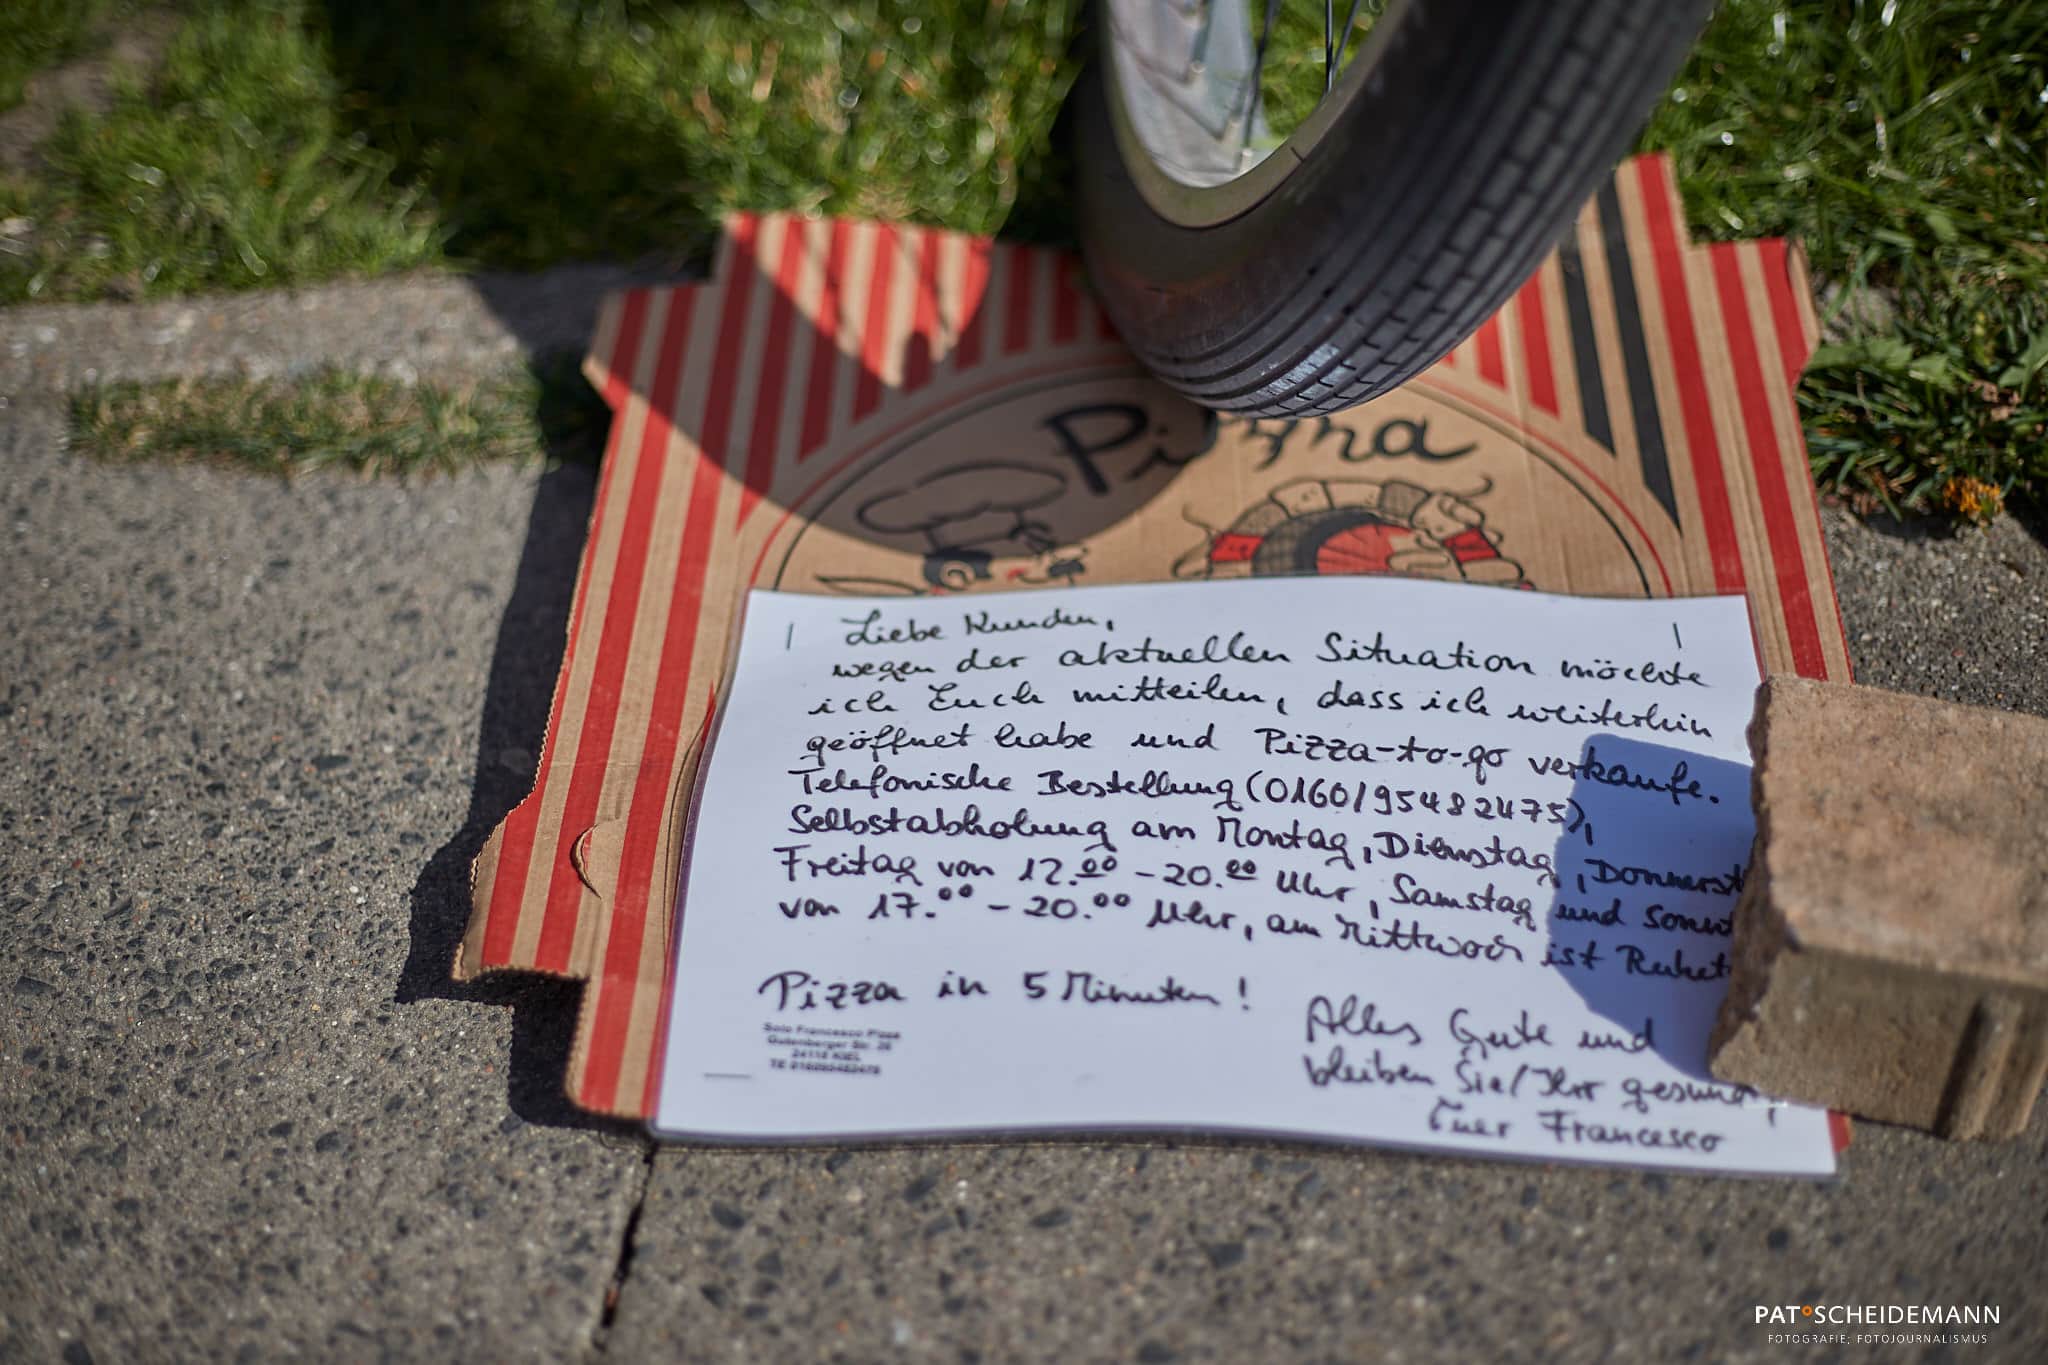 Pizza
Liebe Kunden,
wegen der aktuellen Situation möchte
ich Euch mitteilen, dass ich weiterhin
geöffnet habe und Pizza-to-go verkaufe.
Telefonische Bestellung (0160/95482475),
Selbstabholung am Montag, Dienstag, Donnerst
Freitag von 12.00 - 20.00 Uhr, Samstag und Sonnt
von 17.00 - 20.00 Uhr, am Mittwoch ist Ruhet
Pizza in 5 Minuten!
Alles Gute und
bleiben Sie/Ihr gesund,
Euer Francesco
KIEL
PAT SCHEIDEMANN
FOTOGRAFIE; FOTOJOURNALISMUS